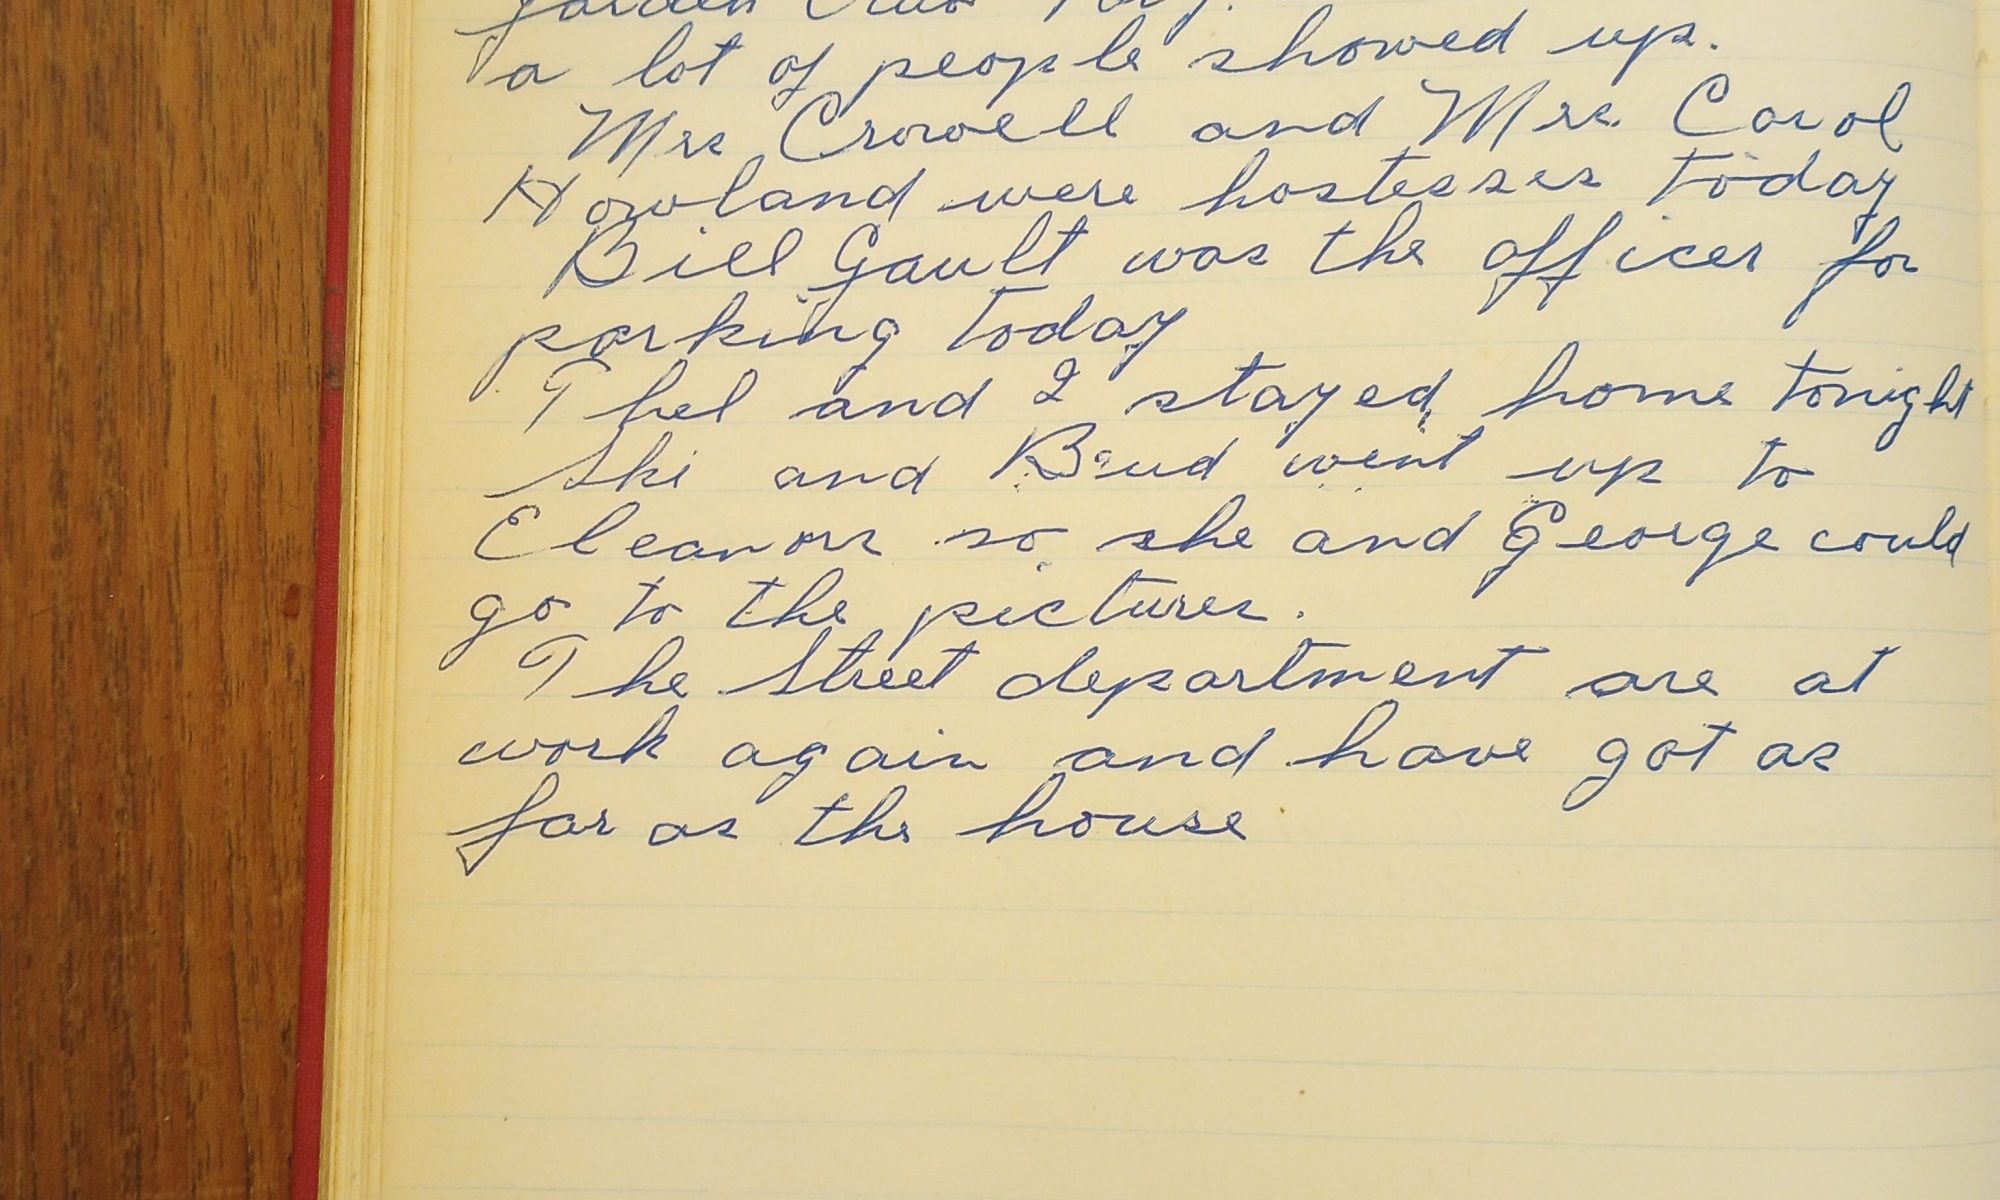 garden Club
a lot of people showed up.
Mrs Crowell and Mrs. Carol
Howland were hostesses today
Bill Gault was the officer for
parking today
Thel and I stayed home tonight
Ski and Bud went up to
Eleanors so she and George could
go to the pictures.
The Street department are at
work again and have got as
far as the house